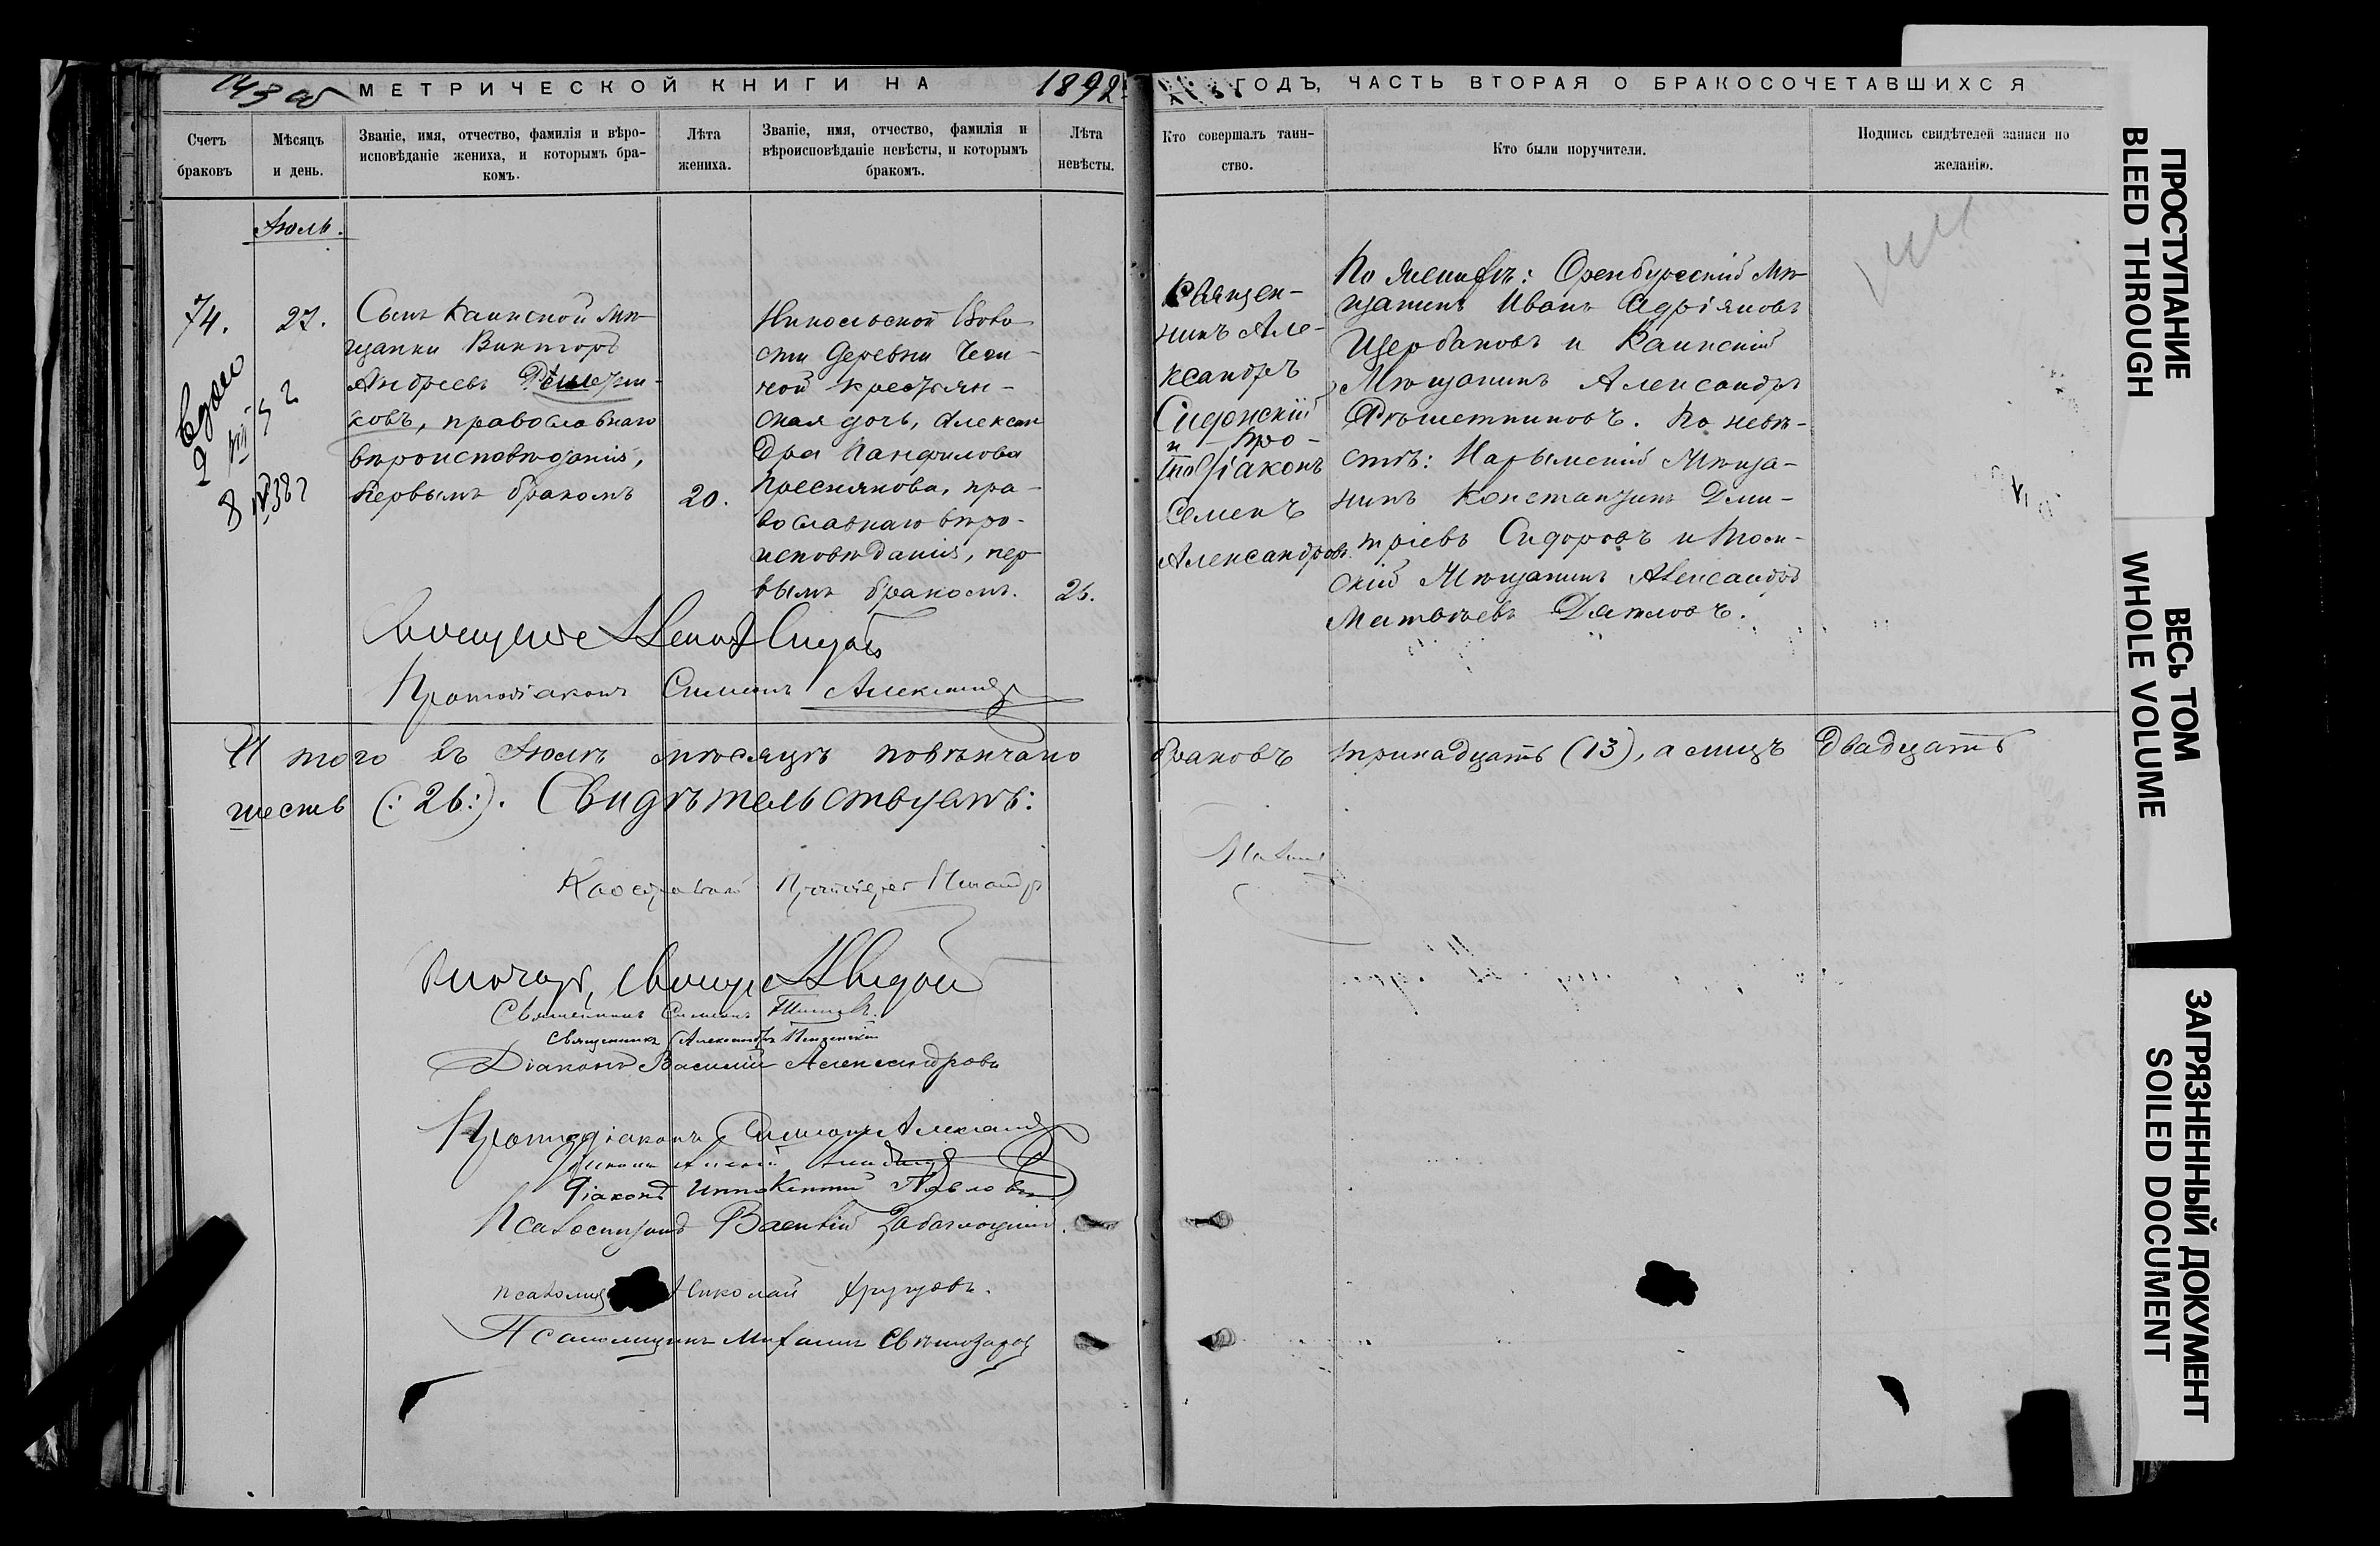 143 об
МЕТРИЧЕСКОЙ КНИГИ НА 1892
ГОДЪ, ЧАСТЬ ВТОРАЯ О БРАКОСОЧЕТАВШИХСЯ
Счетъ
браковъ
Мѣсяцъ
и день.
Званіе, имя, отчество, фамилія и вѣро-
исповѣданіе жениха, и которымъ бра-
комъ.
Лѣта
жениха.
Званіе, имя, отчество, фамилія и
вѣроисповѣданіе невѣсты, и которымъ
бракомъ.
Лѣта
невѣсты.
Кто совершалъ таин-
ство.
Кто были поручители.
Подпись свидѣтелей записи по
желанію.
Іюль.
74.
27.
Сынъ Каинской мѣ-
щанки Викторъ
Андреевъ Решетни-
ковъ, православнаго
вѣроисповѣданія,
первымъ бракомъ
20.
Никольской Воло
сти деревни
ной крестьян-
ская дочь, Алексан
дра Панфилова
Преснякова, пра-
вославнаго вѣро-
исповѣданія, пер
вымъ бракомъ.
26.
Священ-
никъ Але-
ксандръ
Сидонскій
и Про-
тодіаконъ
Семенъ
Александровъ.
По женихѣ: Оренбургскій Мѣ-
щанинъ Иванъ Адріяновъ
Щербаковъ и Каинскій
Мѣщанинъ Александръ
Рѣшетниковъ. По невѣ-
стѣ: Нарымскій Мѣща-
нинъ Константинъ Дми-
тріевъ Сидоровъ и Том-
скій Мѣщанинъ Александръ
Матвѣевъ Дятловъ.
Протодіаконъ Симеонъ Александр
И того въ Іюлѣ мѣсяцѣ повѣнчано браковъ тринадцать (13), а лицъ двадцать
шесть (:26:). Свидѣтельствуютъ:
Каѳедральный Протоіерей
Ключарь, священ
Священникъ Симеонъ Титовъ.
Священникъ Александръ
Діаконъ Василій Александровъ
Протодіаконъ Симеонъ Александр
Діаконъ Иннокентій Павловъ
Псаломщикъ Василій
псаломщ Николай
Псаломщикъ Михаилъ Свѣтозаровъ
ПРОСТУПАНИЕ
BLEED THROUGH
ВЕСЬ ТОМ
WHOLE VOLUME
ЗАГРЯЗНЕННЫЙ ДОКУМЕНТ
SOILED DOCUMENT